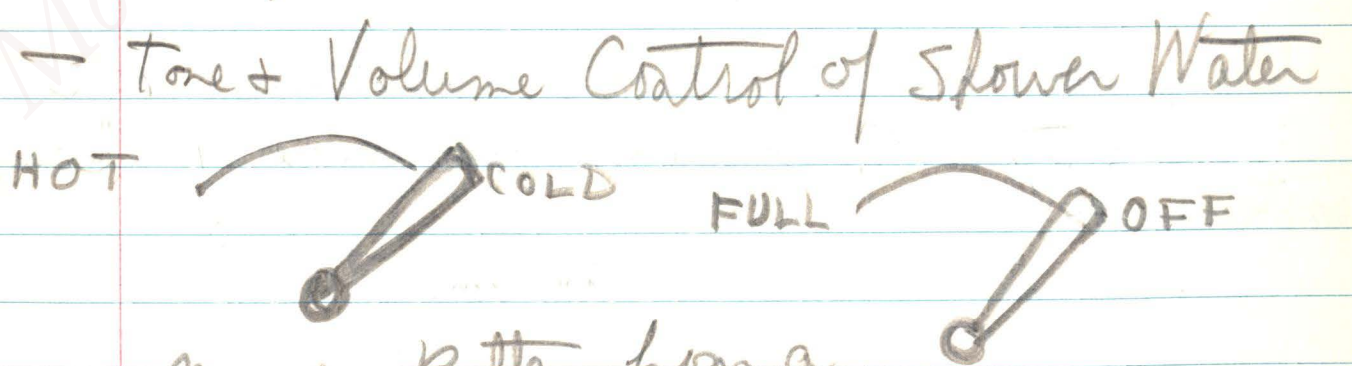 - Tone & Volume Control of Shower Water
HOT COLD FULL OFF